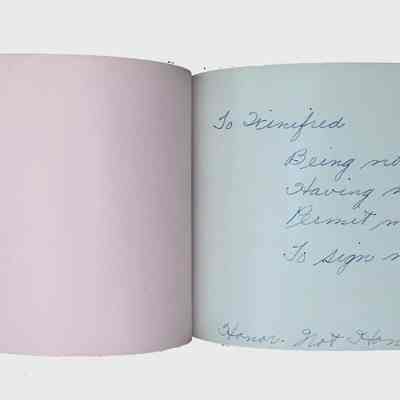 To Winifred
Being no
Having n
Permit m
To sign n
Honor. Not Hon